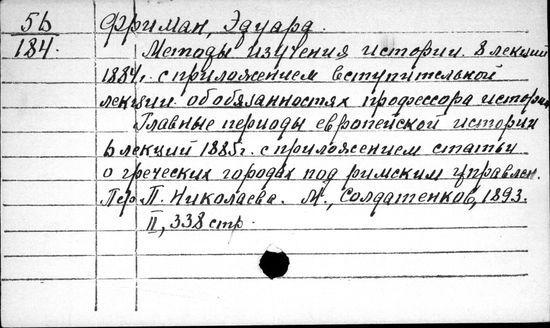 5b
184.
Фриман, Эдуард.
Методы изучения истории. 8 лекций
1884г. с приложением вступительной
лекции об обязанностях профессора истории
Главные периоды европейской истории
6 лекций 1885г. с приложением статьи
о греческих городах под римским управлен.
Пер. П. Николаева. М., Солдатенков, 1893.
II, 338 стр.